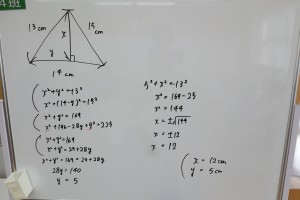 4班
13cm
15cm
x
y
14 cm
x²+y²=13²
x²+(14-y)²=15²
x²+y²=169
x²+196-28y+y²=225
x²+y²=169
x²+y²=29+28y
x²+y²=169=29+28y
28y=140
y=5
5²+x²=13²
x²=169-25
x²=144
x=±√144
x=±12
x=12
x=12cm
y=5cm